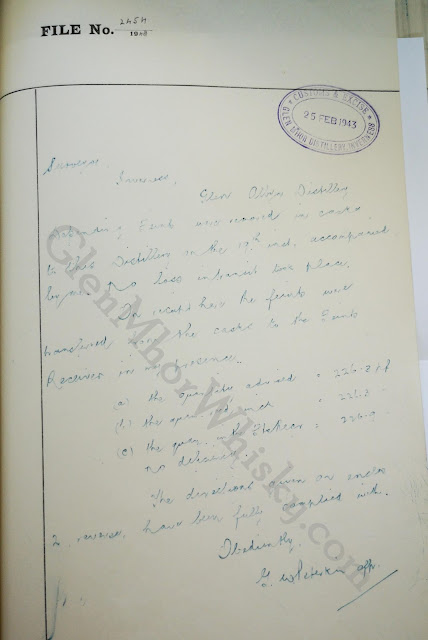 FILE No. 2454
1948
CUSTOMS & EXCISE
25 FEB 1943
GLEN MHOR DISTILLERY INVERNESS
Surveyor
Inverness,
Glen Albyn Distillery
Feints were removed in casks
to this Distillery on the 19th inst, accompanied
by me. No loss in transit took place.
On receipt here the feints were
transferred from the casks to the Feints
Receiver in my presence.
(a) the quantity advised = 224.2
(b) the quan
(c) the quan
no deficiency.
The directions given on
2 reverse, have been fully complied with.
Obediently,
GlenMhorWhisky.com